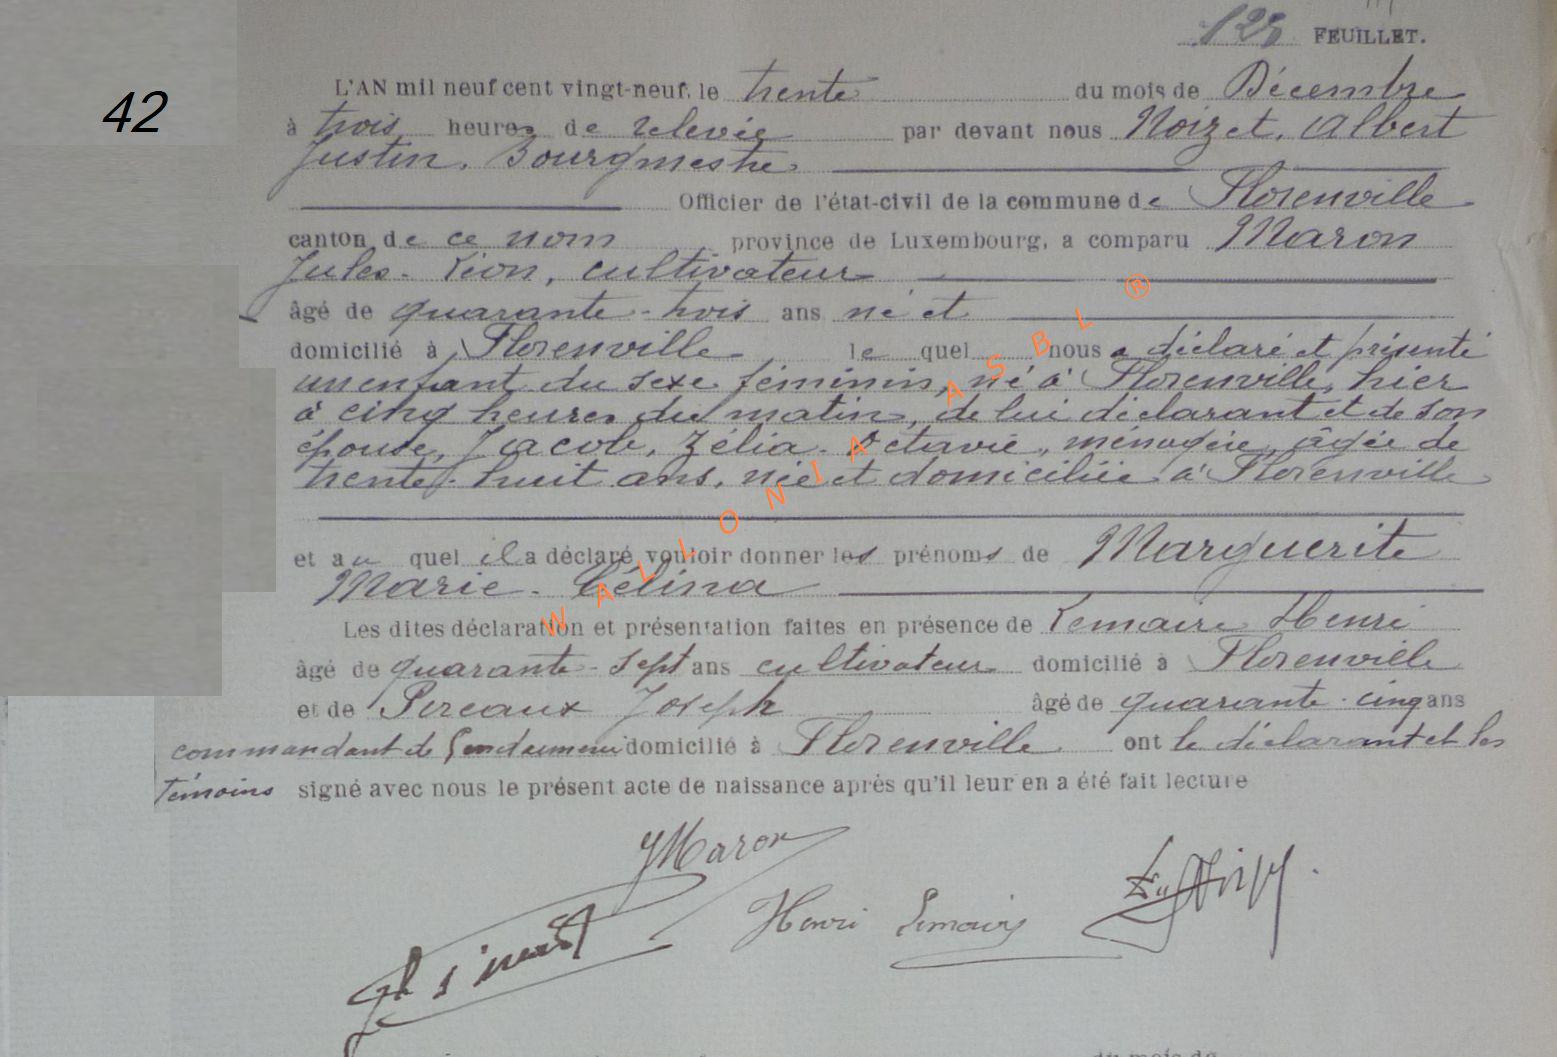 125 FEUILLET.
42
L'AN mil neuf cent vingt-neuf, le trente du mois de Décembre
à trois heures de relevée par devant nous Noizet, Albert
Justin, Bourgmestre
Officier de l'état-civil de la commune de Florenville
canton de ce nom province de Luxembourg, a comparu Maron
Jules-Léon, cultivateur
âgé de quarante-trois ans né et
domicilié à Florenville, le quel nous a déclaré et présenté
un enfant du sexe féminin, né à Florenville, hier
à cinq heures du matin, de lui déclarant et de son
épouse, Jacob, Zélia-Octavie, ménagère, âgée de
trente-huit ans, née et domiciliée à Florenville
et au quel il a déclaré vouloir donner les prénoms de Marguerite
Marie-Célina
Les dites déclaration et présentation faites en présence de Lemaire Henri
âgé de quarante-sept ans cultivateur domicilié à Florenville
et de Joseph âgé de quarante-cinq ans
commandant de Gendarmerie domicilié à Florenville ont le déclarant et les
témoins signé avec nous le présent acte de naissance après qu'il leur en a été fait lecture
JMaron
Henri Lemaire
WALLONIA ASBL ®
du mois de